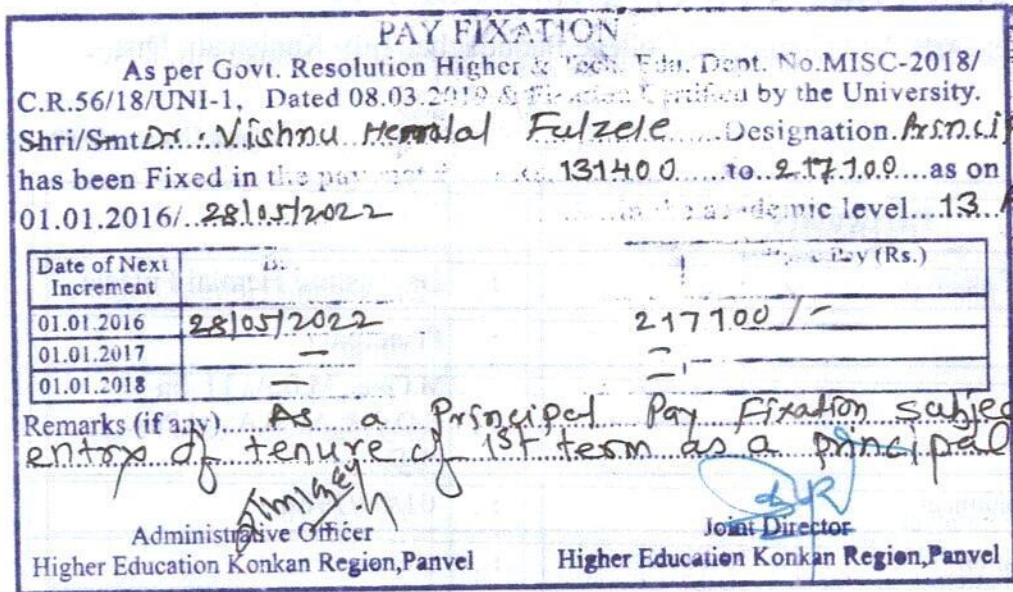 PAY FIXATION
As per Govt. Resolution Higher & Tech. Edu. Dept. No.MISC-2018/
C.R.56/18/UNI-1, Dated 08.03.2019 & Fixation Certified by the University.
Shri/Smt Dr. Vishnu Hemalal Fulzele Designation
has been Fixed in the pay 131400 to 217100 as on
01.01.2016/ 28/05/2022 in the academic level 13
Date of Next Increment Pay (Rs.)
01.01.2016 28/05/2022 217100/-
01.01.2017 — —
01.01.2018 — —
Remarks (if any) As a Principal Pay Fixation subjec
entry of tenure of 1st term as a principal
Administrative Officer Joint Director
Higher Education Konkan Region,Panvel Higher Education Konkan Region,Panvel